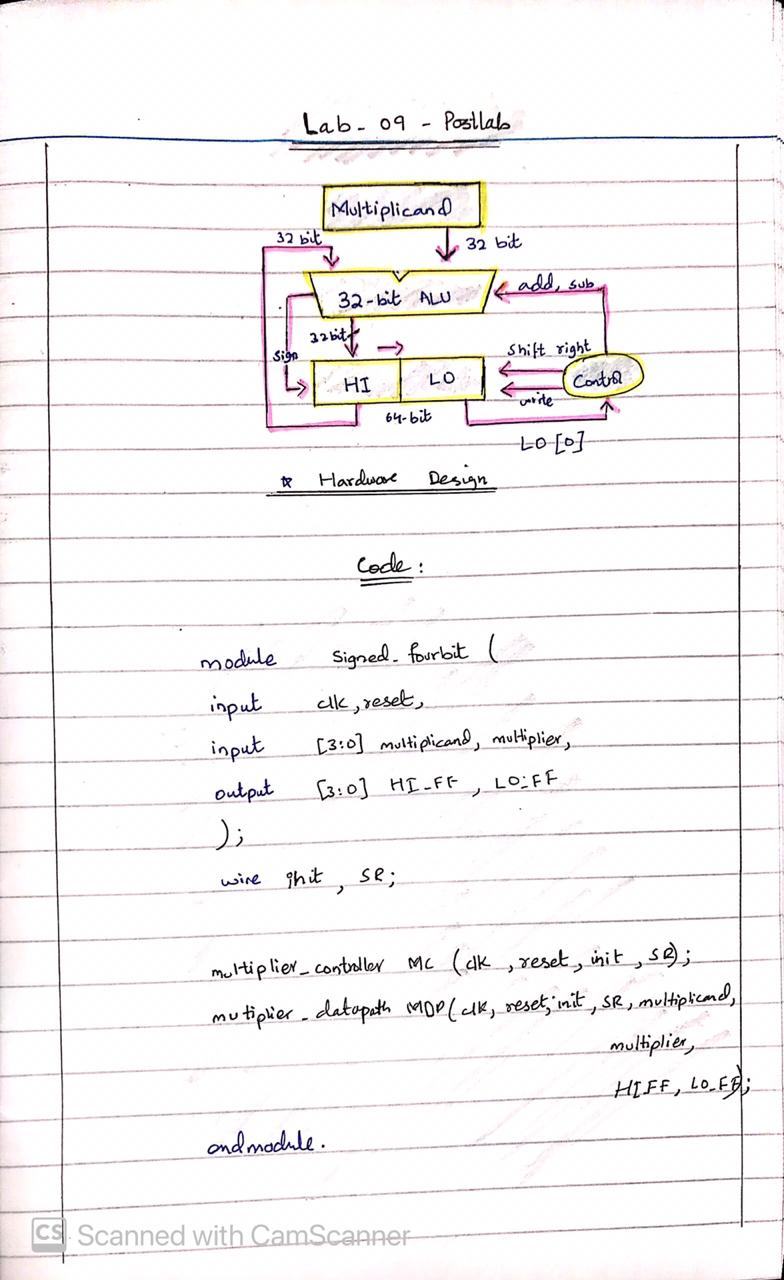 Lab - 09 - Postlab
Multiplicand
32 bit
32 bit
32-bit ALU
add, sub
32bit
Sign
shift right
HI
LO
Control
write
64-bit
LO [0]
☆ Hardware Design
Code :
module signed_fourbit (
input clk, reset,
input [3:0] multiplicand, multiplier,
output [3:0] HI_FF , LO_FF
);
wire init , SR;
multiplier_controller MC (clk , reset, init , SR);
mutiplier_datapath MDP(clk, reset, init, SR, multiplicand,
multiplier,
HIFF, LO_FF);
endmodule.
CS Scanned with CamScanner